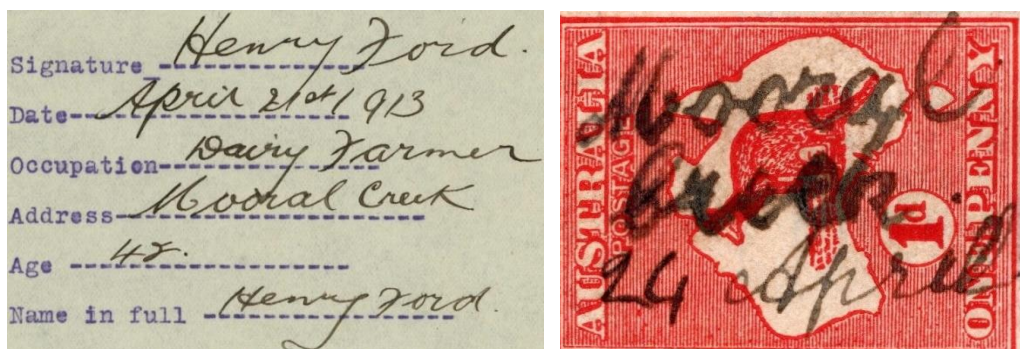 Signature Henry Ford.
Date April 21st 1913
Occupation Dairy Farmer
Address Mooral Creek
Age 42.
Name in full Henry Ford.
AUSTRALIA
POSTAGE
Mooral
Creek
24 April
1d
ONE PENNY